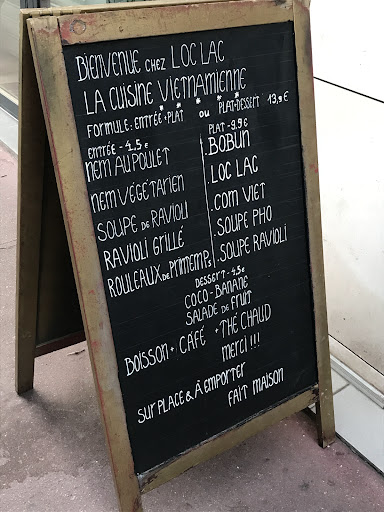 BIENVENUE CHEZ LOC LAC
LA CUISINE VIETNAMIENNE
FORMULE: ENTRÉE+PLAT OU PLAT+DESSERT 13,9€
ENTRÉE - 4.5€
NEM AU POULET
NEM VÉGÉTARIEN
SOUPE DE RAVIOLI
RAVIOLI GRILLÉ
ROULEAUX DE PRIMTEMPS
PLAT - 9.9€
BOBUN
LOC LAC
COM VIET
SOUPE PHO
SOUPE RAVIOLI
DESSERT - 4.5€
COCO-BANANE
SALADE DE FRUIT
BOISSON + CAFÉ + THÉ CHAUD
MERCI !!!
SUR PLACE & À EMPORTER
FAIT MAISON